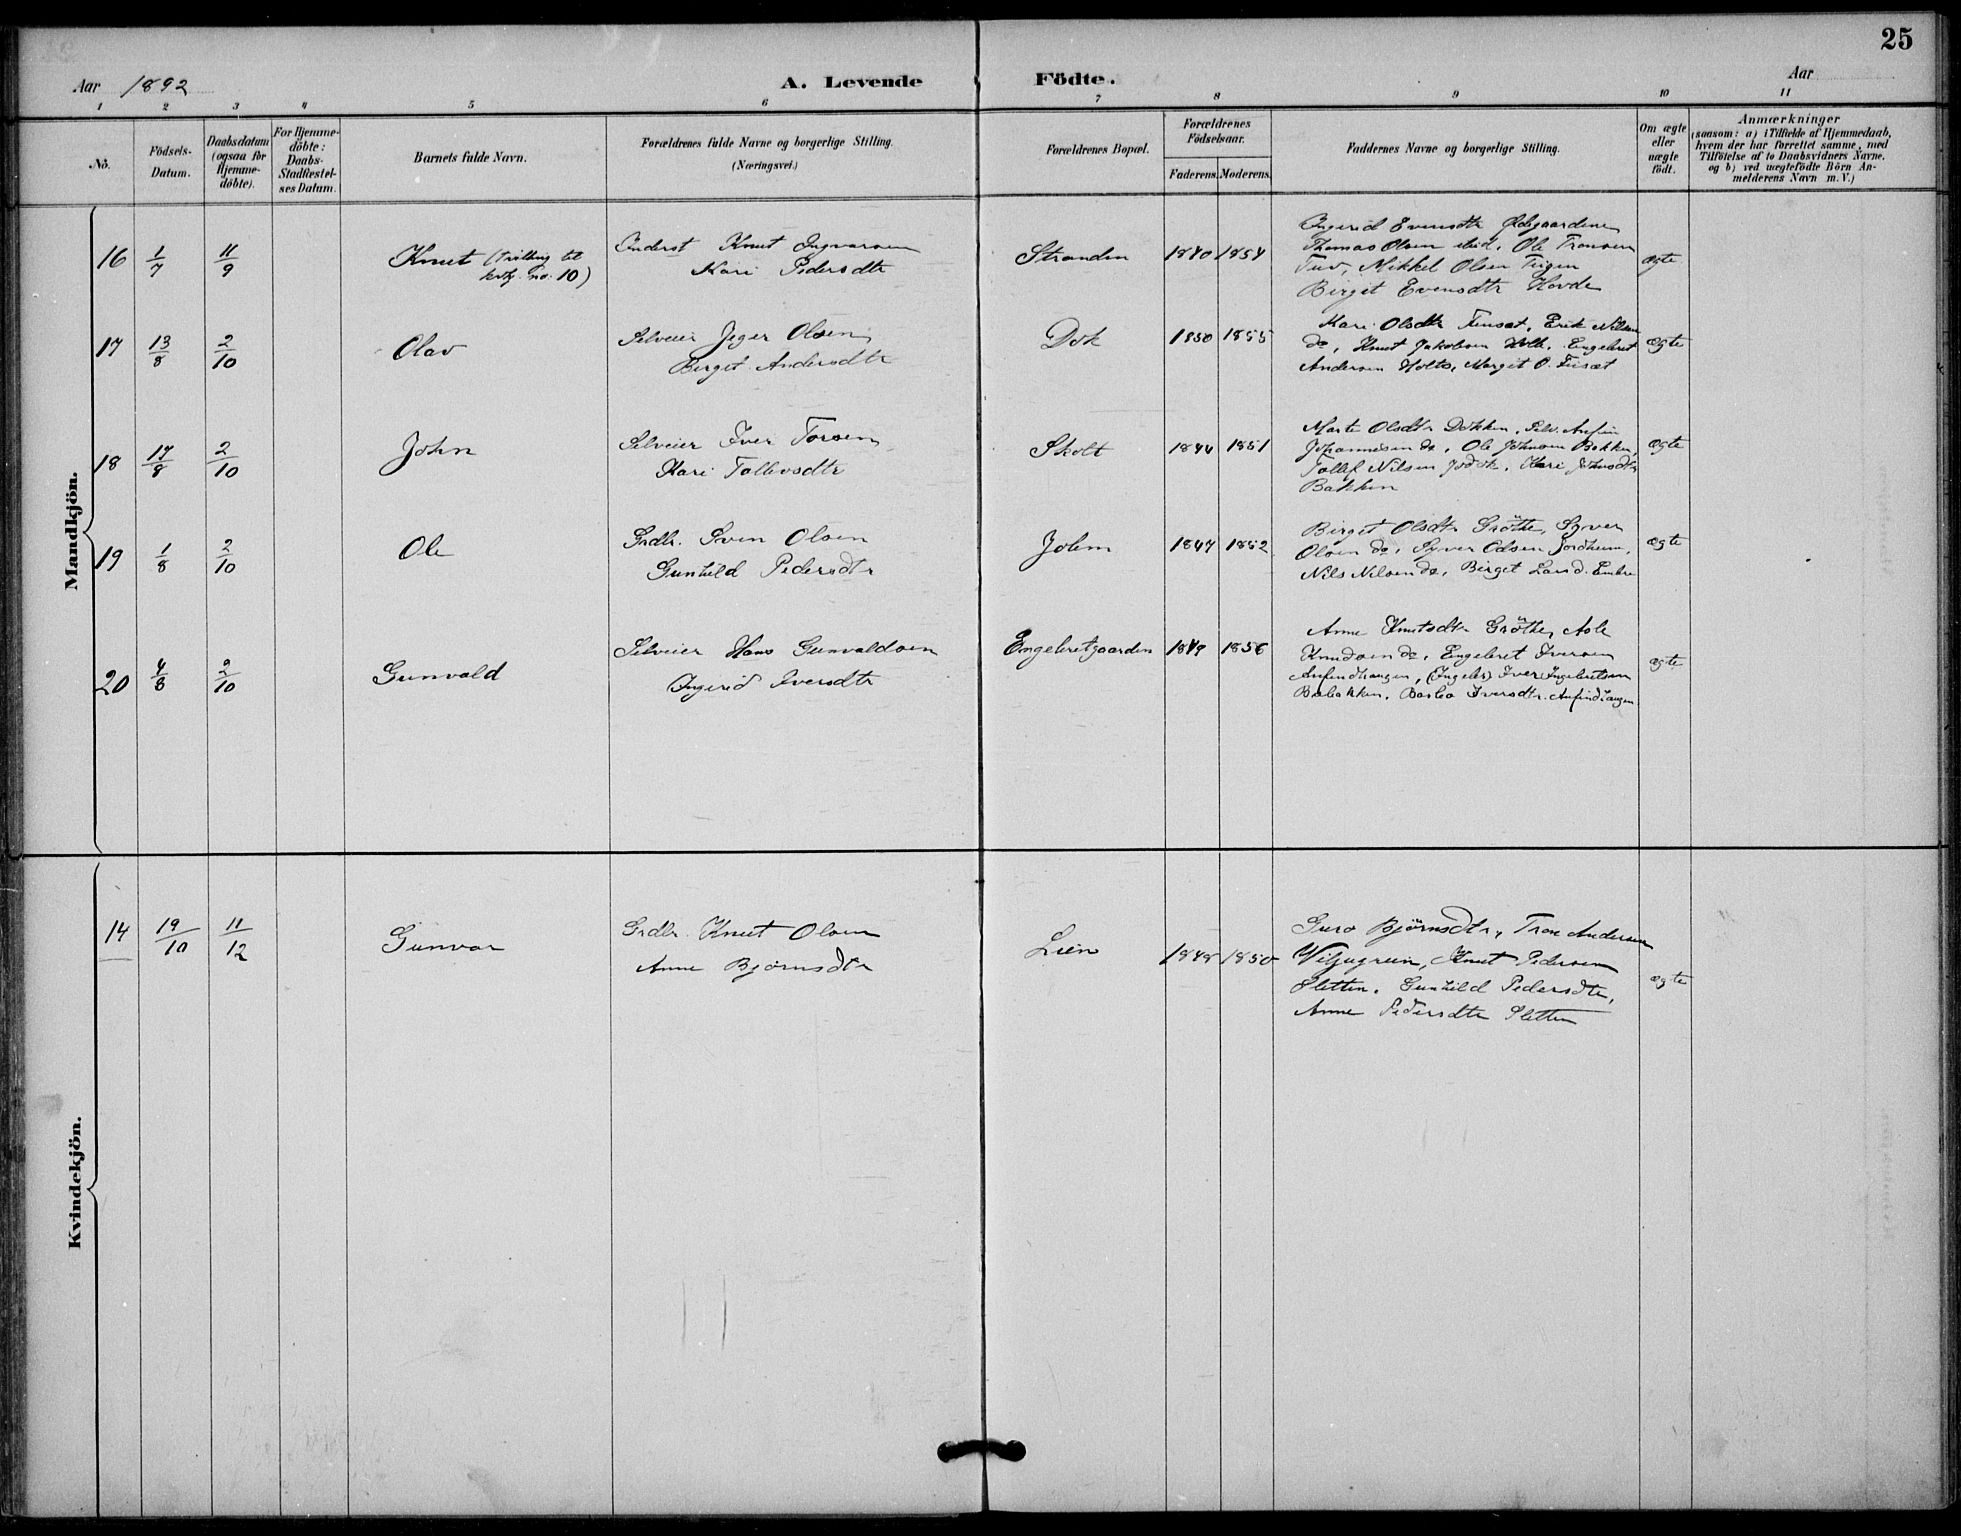 25
Aar 1892
A. Levende Födte.
Aar
1 2 3 4 5 6 7 8 9 10 11
No.
Födsels-
Datum.
Daabsdatum
(ogsaa for
Hjemme-
döbte).
For Hjemme-
döbte:
Daabs-
Stadfæstel-
ses Datum.
Barnets fulde Navn.
Forældrenes fulde Navne og borgerlige Stilling.
(Næringsvei.)
Forældrenes Bopæl.
Forældrenes
Födselsaar.
Faderens. Moderens.
Faddernes Navne og borgerlige Stilling.
Om ægte
eller
uægte
födt.
Anmærkninger
(saasom: a) i Tilfælde af Hjemmedaab,
hvem der har forrettet samme, med
Tilföielse af to Daabsvidners Navne,
og b) ved uægtefödte Börn An-
melderens Navn m. V.)
Mandkjön.
16 1/7 11/9 Knut (tvilling til
kvkj. no. 10)
Inderst Knut Ingvarsen
Kari Pedersdtr
Stranden 1840 1854
Ingerid Evensdtr Ødegaardene
Thomas Olsen ibid. Ole Tronsen
Tuv, Mikkel Olsen Teigen
Birgit Evensdtr Hovde
ægte
17 13/8 2/10 Olav
Selveier Jeger Olsen
Birgit Andersdtr
Dok 1850 1855
Kari Olsdtr Tuset, Erik Nilsen
do, Knut Jakobsen Holto, Engebret
Andersen Holto, Margit O. Tuset
ægte
18 17/8 2/10 John
Selveier Iver Torsen
Kari Tollevsdtr
Skolt 1844 1851
Marte Olsdtr Dokken, Selv. Anfin
Johannesen do, Ole Johnsen Bakken,
Tollef Nilsen, Kari Johnsdtr
Bakken
ægte
19 1/8 2/10 Ole
Grdbr. Sven Olsen
Gunhild Pedersdtr
Jolem 1847 1852
Birget Olsdtr Gröthe, Syver
Olsen do, Syver Odsen Jordheim,
Nils Nilsen do, Birget Larsd. Embre
ægte
20 4/8 2/10 Gunvald
Selveier Hans Gunvaldsen
Ingerid Iversdtr
Engebretgaarden 1849 1856
Anne Knutsdtr Gröthe, Asle
Knudsen do, Engebret Iversen
Anfindhaugen, (Ingebr) Iver Ingebretsen
Babakken, Barbo Iversdtr. Anfindhaugen
ægte
Kvindekjön.
14 19/10 11/12 Gunvor
Grdbr. Knut Olsen
Anne Björnsdtr
Lien 1848 1850
Guro Björnsdtr, Tron Andersen
Viljugrein, Knut Pedersen
Sletten. Gunhild Pedersdtr,
Anne Pedersdtr Sletten
ægte